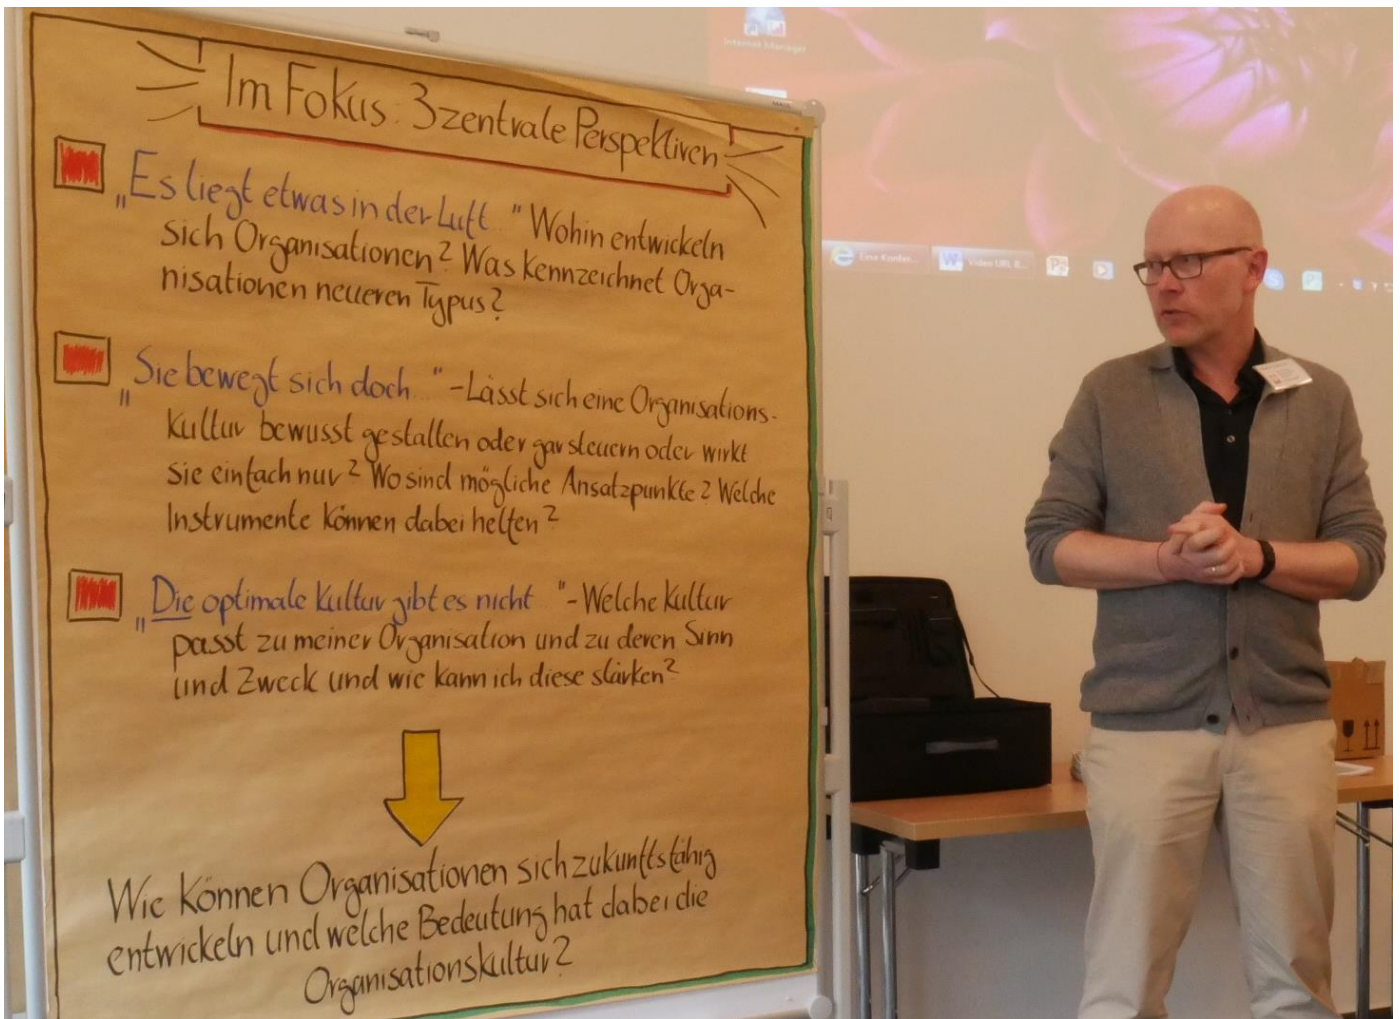 Im Fokus: 3 zentrale Perspektiven
„Es liegt etwas in der Luft..." Wohin entwickeln
sich Organisationen? Was kennzeichnet Orga-
nisationen neueren Typus?
„Sie bewegt sich doch..." - Lässt sich eine Organisations-
kultur bewusst gestalten oder gar steuern oder wirkt
sie einfach nur? Wo sind mögliche Ansatzpunkte? Welche
Instrumente können dabei helfen?
„Die optimale Kultur gibt es nicht..." - Welche Kultur
passt zu meiner Organisation und zu deren Sinn
und Zweck und wie kann ich diese stärken?
Wie können Organisationen sich zukunftsfähig
entwickeln und welche Bedeutung hat dabei die
Organisationskultur?
Internet Manager
Eine Konfer...
Video URL B...